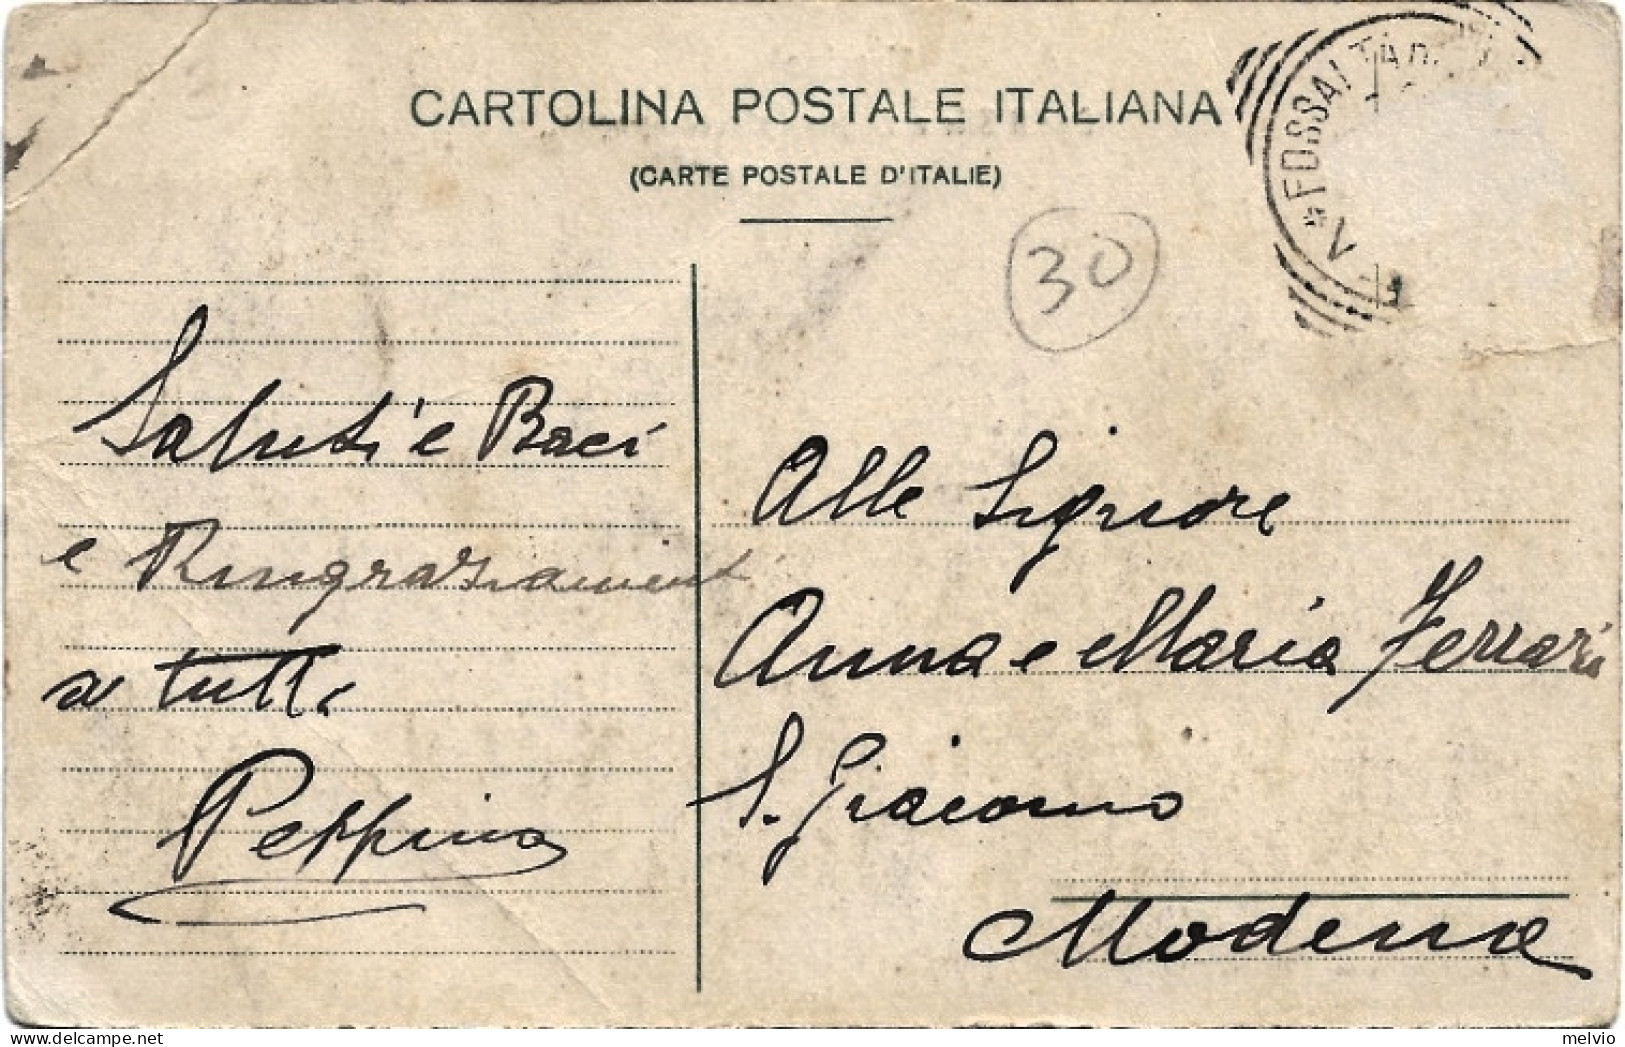 CARTOLINA POSTALE ITALIANA
(CARTE POSTALE D'ITALIE)
FOSSALTA
30
Saluti e Baci
e Ringraziamenti
a tutti
Peppino
Alle Signore
Anna e Maria Ferrari
S. Giacomo
Modena
delcampe.net
melvio